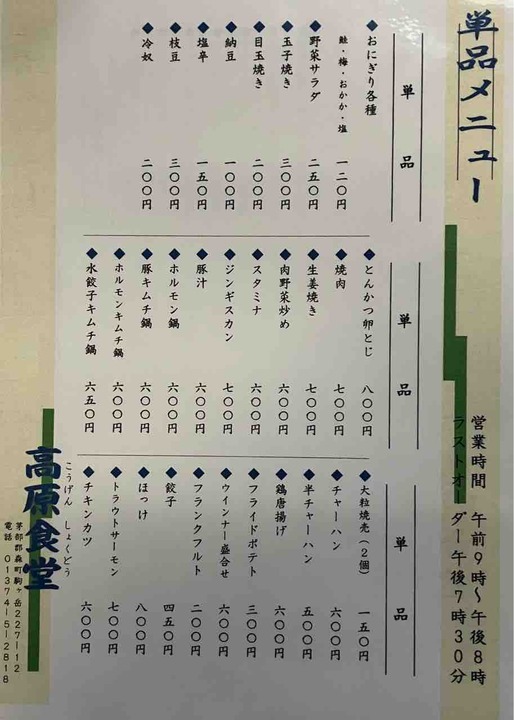 単品メニュー
営業時間 午前9時～午後8時
ラストオーダー午後7時30分
単品
◆おにぎり各種 一二〇円
鮭・梅・おかか・塩
◆野菜サラダ 二五〇円
◆玉子焼き 三〇〇円
◆目玉焼き 二〇〇円
◆納豆 一〇〇円
◆塩辛 一五〇円
◆枝豆 三〇〇円
◆冷奴 二〇〇円
単品
◆とんかつ卵とじ 八〇〇円
◆焼肉 七〇〇円
◆生姜焼き 七〇〇円
◆肉野菜炒め 六〇〇円
◆スタミナ 六〇〇円
◆ジンギスカン 七〇〇円
◆豚汁 六〇〇円
◆ホルモン鍋 六〇〇円
◆豚キムチ鍋 六〇〇円
◆ホルモンキムチ鍋 六〇〇円
◆水餃子キムチ鍋 六五〇円
単品
◆大粒焼売(2個) 一五〇円
◆チャーハン 六〇〇円
◆半チャーハン 五〇〇円
◆鶏唐揚げ 六〇〇円
◆フライドポテト 三〇〇円
◆ウィンナー盛合せ 六〇〇円
◆フランクフルト 二〇〇円
◆餃子 四五〇円
◆ほっけ 八〇〇円
◆トラウトサーモン 七〇〇円
◆チキンカツ 六〇〇円
こうげん しょくどう
高原食堂
茅部郡森町駒ヶ岳227-12
電話 01374-5-2818